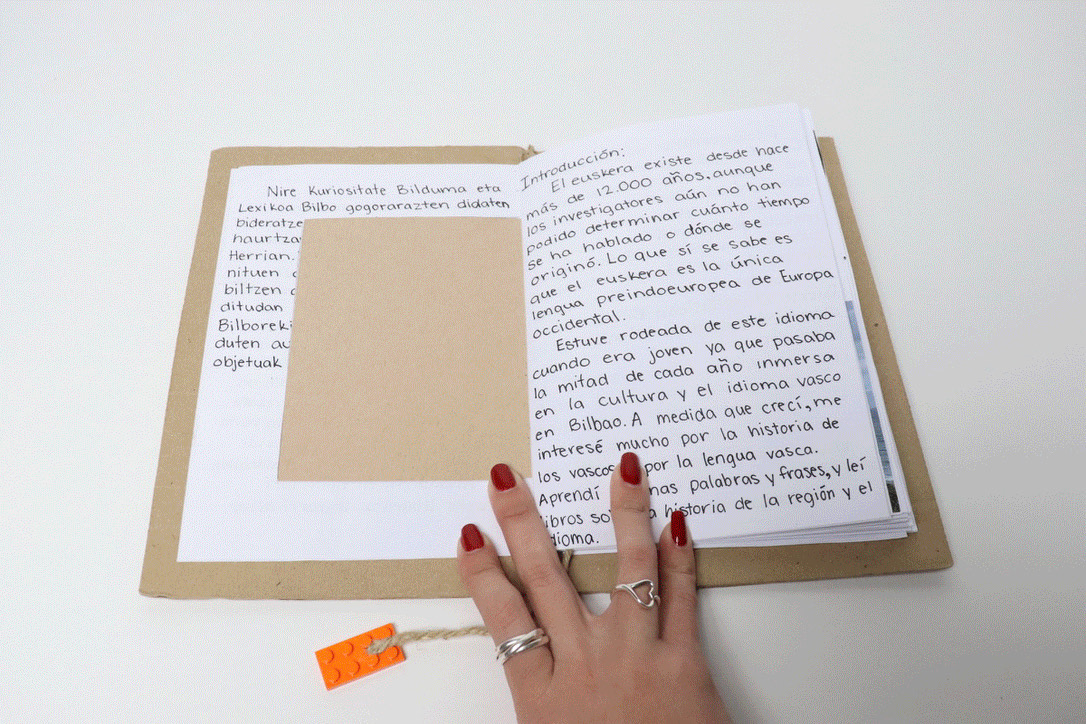 Nire Kuriositate Bilduma eta
Lexikoa Bilbo gogorarazten didaten
bideratze
haurtza
Herrian.
nituen
biltzen
ditudan
Bilboreki
duten au
objetuak
Introducción:
El euskera existe desde hace
más de 12.000 años, aunque
los investigatores aún no han
podido determinar cuánto tiempo
se ha hablado o dónde se
originó. Lo que sí se sabe es
que el euskera es la única
lengua preindoeuropea de Europa
occidental.
Estuve rodeada de este idioma
cuando era joven ya que pasaba
la mitad de cada año inmersa
en la cultura y el idioma vasco
en Bilbao. A medida que crecí, me
interesé mucho por la historia de
los vascos por la lengua vasca.
Aprendí nas palabras y frases, y leí
libros so a historia de la región y el
idioma.